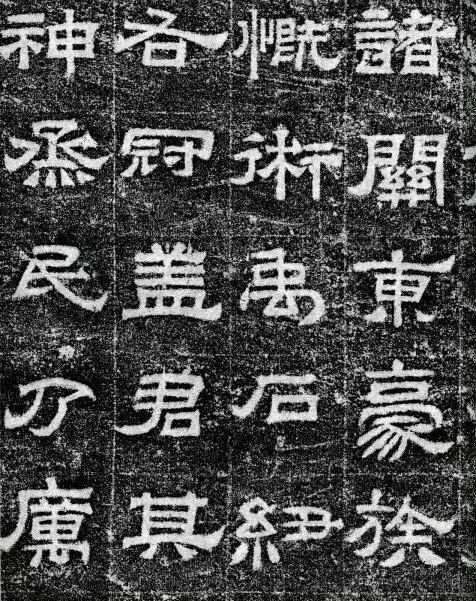 諸關東豪族
慨術禹石紐
各冠盖君其
神烝民乃厲